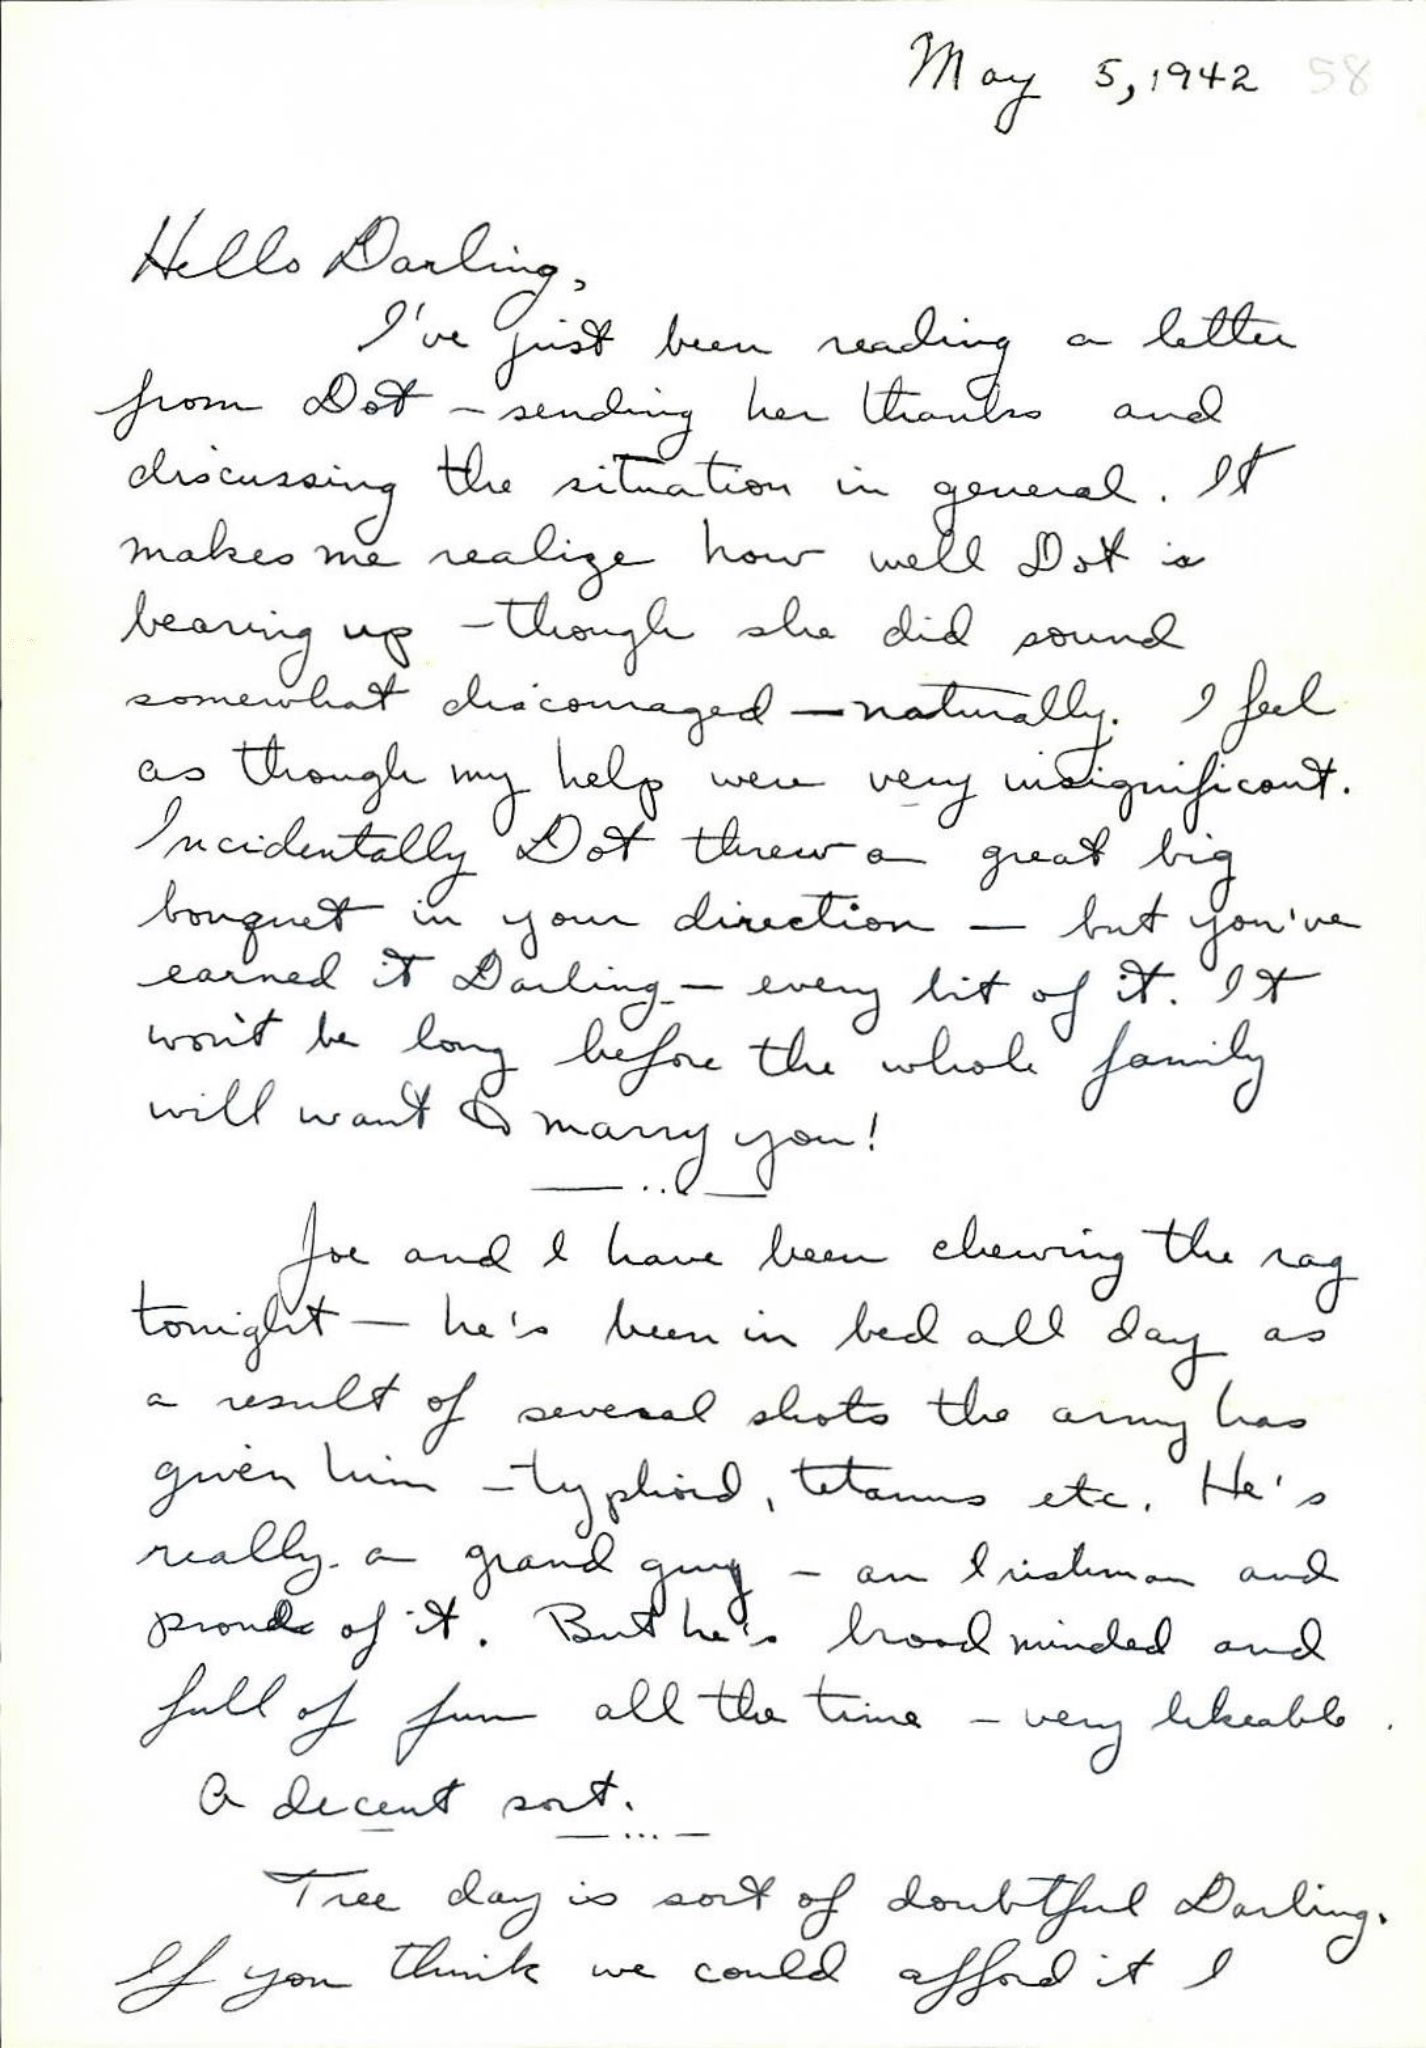 May 5, 1942 58
Hello Darling,
I've just been reading a letter
from Dot – sending her thanks and
discussing the situation in general. It
makes me realize how well Dot is
bearing up – though she did sound
somewhat discouraged – naturally. I feel
as though my help were very insignificant.
Incidentally Dot threw a great big
bouquet in your direction – but you've
earned it Darling – every bit of it. It
won't be long before the whole family
will want to marry you!
Joe and I have been chewing the rag
tonight – he's been in bed all day as
a result of several shots the army has
given him – typhoid, tetanus etc. He's
really a grand guy – an Irishman and
proud of it. But he's broad minded and
full of fun all the time – very likeable.
A decent sort.
Tree day is sort of doubtful Darling.
If you think we could afford it I